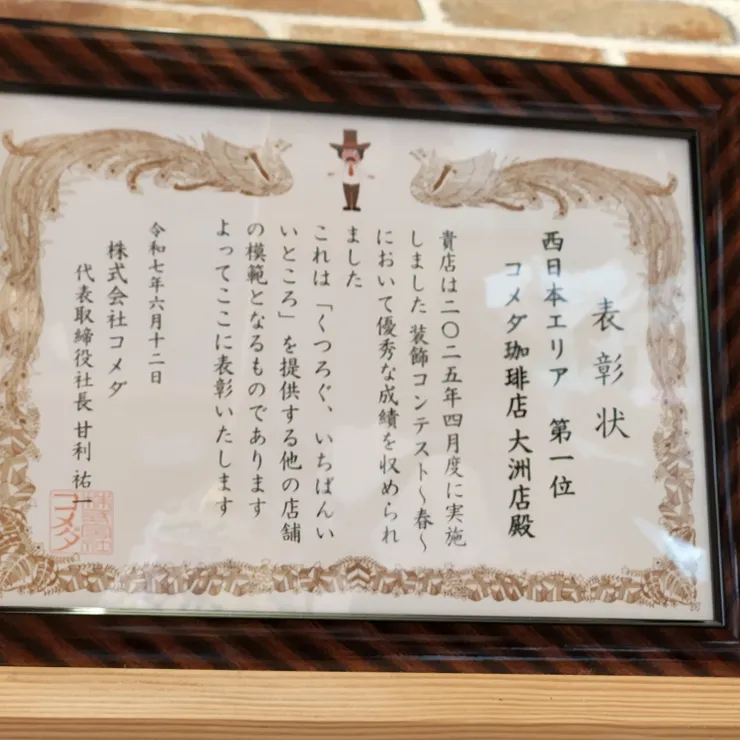 表彰状
西日本エリア 第一位
コメダ珈琲店 大洲店殿
貴店は二〇二五年四月度に実施
しました 装飾コンテスト～春～
において優秀な成績を収められ
ました
これは「くつろぐ、いちばんい
いところ」を提供する他の店舗
の模範となるものであります
よってここに表彰いたします
令和七年六月十二日
株式会社コメダ
代表取締役社長 甘利 祐一
株式会社
コメダ